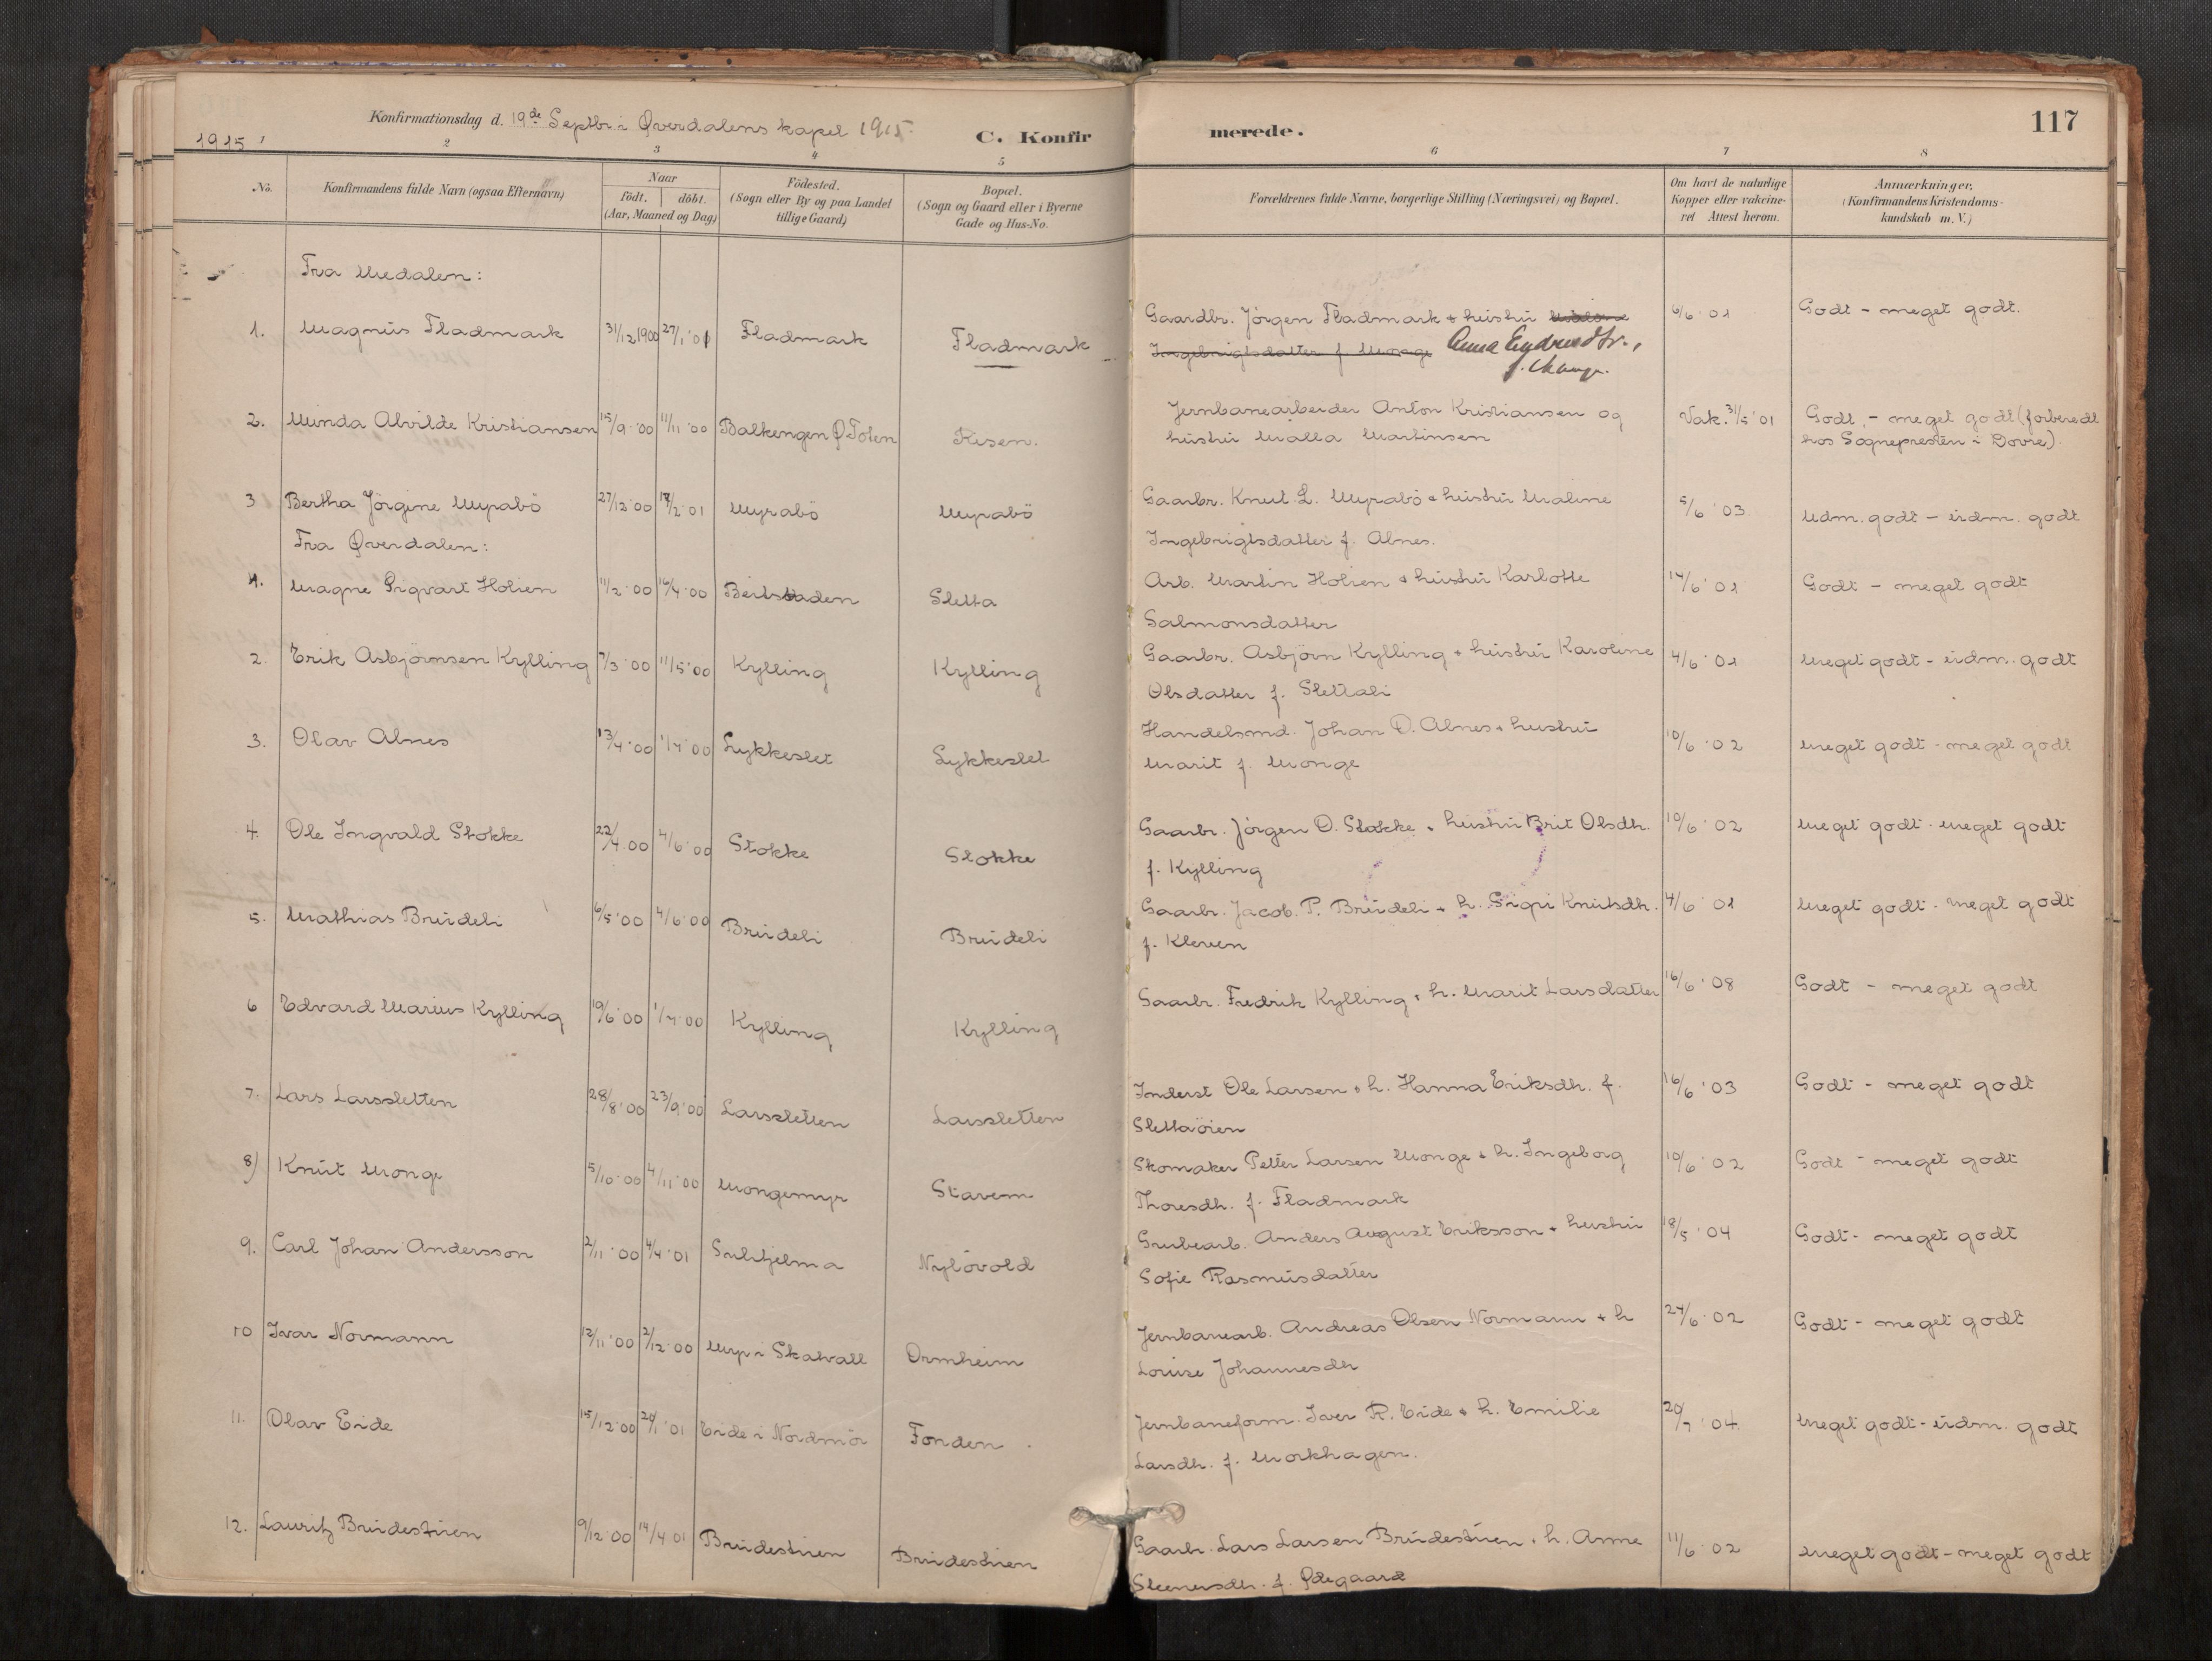 117
1915
Konfirmationsdag d. 19de Septbr i Øverdalens kapel 1915.
C. Konfirmerede.
1 2 3 4 5 6 7 8
No.
Konfirmandens fulde Navn (ogsaa Efternavn)
Naar
födt. | döbt.
(Aar, Maaned og Dag)
Födested.
(Sogn eller By og paa Landet
tillige Gaard)
Bopæl.
(Sogn og Gaard eller i Byerne
Gade og Hus-No.
Forældrenes fulde Navne, borgerlige Stilling (Næringsvei) og Bopæl.
Om havt de naturlige
Kopper eller vakcine-
ret Attest herom.
Anmærkninger.
(Konfirmandens Kristendoms-
kundskab m. V.)
Fra Medalen:
1. Magnus Fladmark 31/12 1900 27/1 '01 Fladmark Fladmark Gaardbr. Jörgen Fladmark & hustru
Ingebrigtsdatter f. Monge Anna Endresdtr.,
f. Monge. 6/6 '01 Godt - meget godt.
2. Minda Alvilde Kristiansen 15/9 '00 11/11 '00 Balkengen Ø. Toten Risen. Jernbanearbeider Anton Kristiansen og
hustru Malla Martinsen Vak. 31/5 '01 Godt, - meget godt (forberedt
hos Sognepresten i Dovre).
3 Bertha Jörgine Myrabö 27/12 '00 /2 '01 Myrabö Myrabö Gaarbr. Knut L. Myrabö & hustru Maline
Ingebrigtsdatter f. Alnes. 5/6 '03 Udm. godt - udm. godt
Fra Øverdalen:
1. Magne Ingvart Holien 11/2 '00 16/4 '00 Beitstaden Sletta Arb. Martin Holien & hustru Karlotte
Salmonsdatter 14/6 '01 Godt - meget godt
2. Erik Asbjörnsen Kylling 7/3 '00 11/5 '00 Kylling Kylling Gaarbr. Asbjörn Kylling & hustru Karoline
Olsdatter f. Slettali 4/6 '01 Meget godt - udm. godt
3. Olav Alnes 13/4 '00 1/7 '00 Lykkeslet Lykkeslet Handelsmd. Johan O. Alnes & hustru
Marit f. Monge 10/6 '02 Meget godt - meget godt
4. Ole Ingvald Stokke 22/4 '00 4/6 '00 Stokke Stokke Gaarbr. Jörgen O. Stokke & hustru Brit Olsdtr.
f. Kylling 10/6 '02 Meget godt - meget godt
5. Mathias Brudeli 6/5 '00 4/6 '00 Brudeli Brudeli Gaarbr. Jacob. P. Brudeli & h. Sigri Knutsdtr.
f. Kleven 4/6 '01 Meget godt - meget godt
6 Edvard Marius Kylling 19/6 '00 1/7 '00 Kylling Kylling Gaarbr. Fredrik Kylling & h. Marit Larsdatter 16/6 '08 Godt - meget godt
7. Lars Larssletten 28/8 '00 23/9 '00 Larssletten Larssletten Inderst Ole Larsen & h. Hanna Eriksdtr. f.
Slettaöien 16/6 '03 Godt - meget godt
8) Knut Monge 5/10 '00 4/11 '00 Mongemyr Stavem Skomaker Petter Larsen Monge & h. Ingeborg
Thoresdtr. f. Fladmark 10/6 '02 Godt - meget godt
9. Carl Johan Andersson 2/11 '00 4/4 '01 Sulitjelma Nylövold Grubearb. Anders August Eriksson & hustru
Sofie Rasmusdatter 18/5 '04 Godt - meget godt
10 Ivar Normann 12/11 '00 2/12 '00 Myr i Skatvall Ormheim Jernbanearb. Andreas Olsen Normann & h
Louise Johannesdtr 24/6 '02 Godt - meget godt
11. Olav Eide 15/12 '00 /1 '01 Eide i Nordmör Fonden Jernbaneform. Iver R. Eide & h. Emilie
Larsdtr. f. Morkhagen. 20/7 '04. Meget godt - udm. godt
12. Lauritz Brudestuen 9/12 '00 14/4 01 Brudestuen Brudestuen Gaarbr. Lars Larsen Brudestuen & h. Anne
Steenersdtr. f. Ødegaard 11/6 '02 Meget godt - meget godt